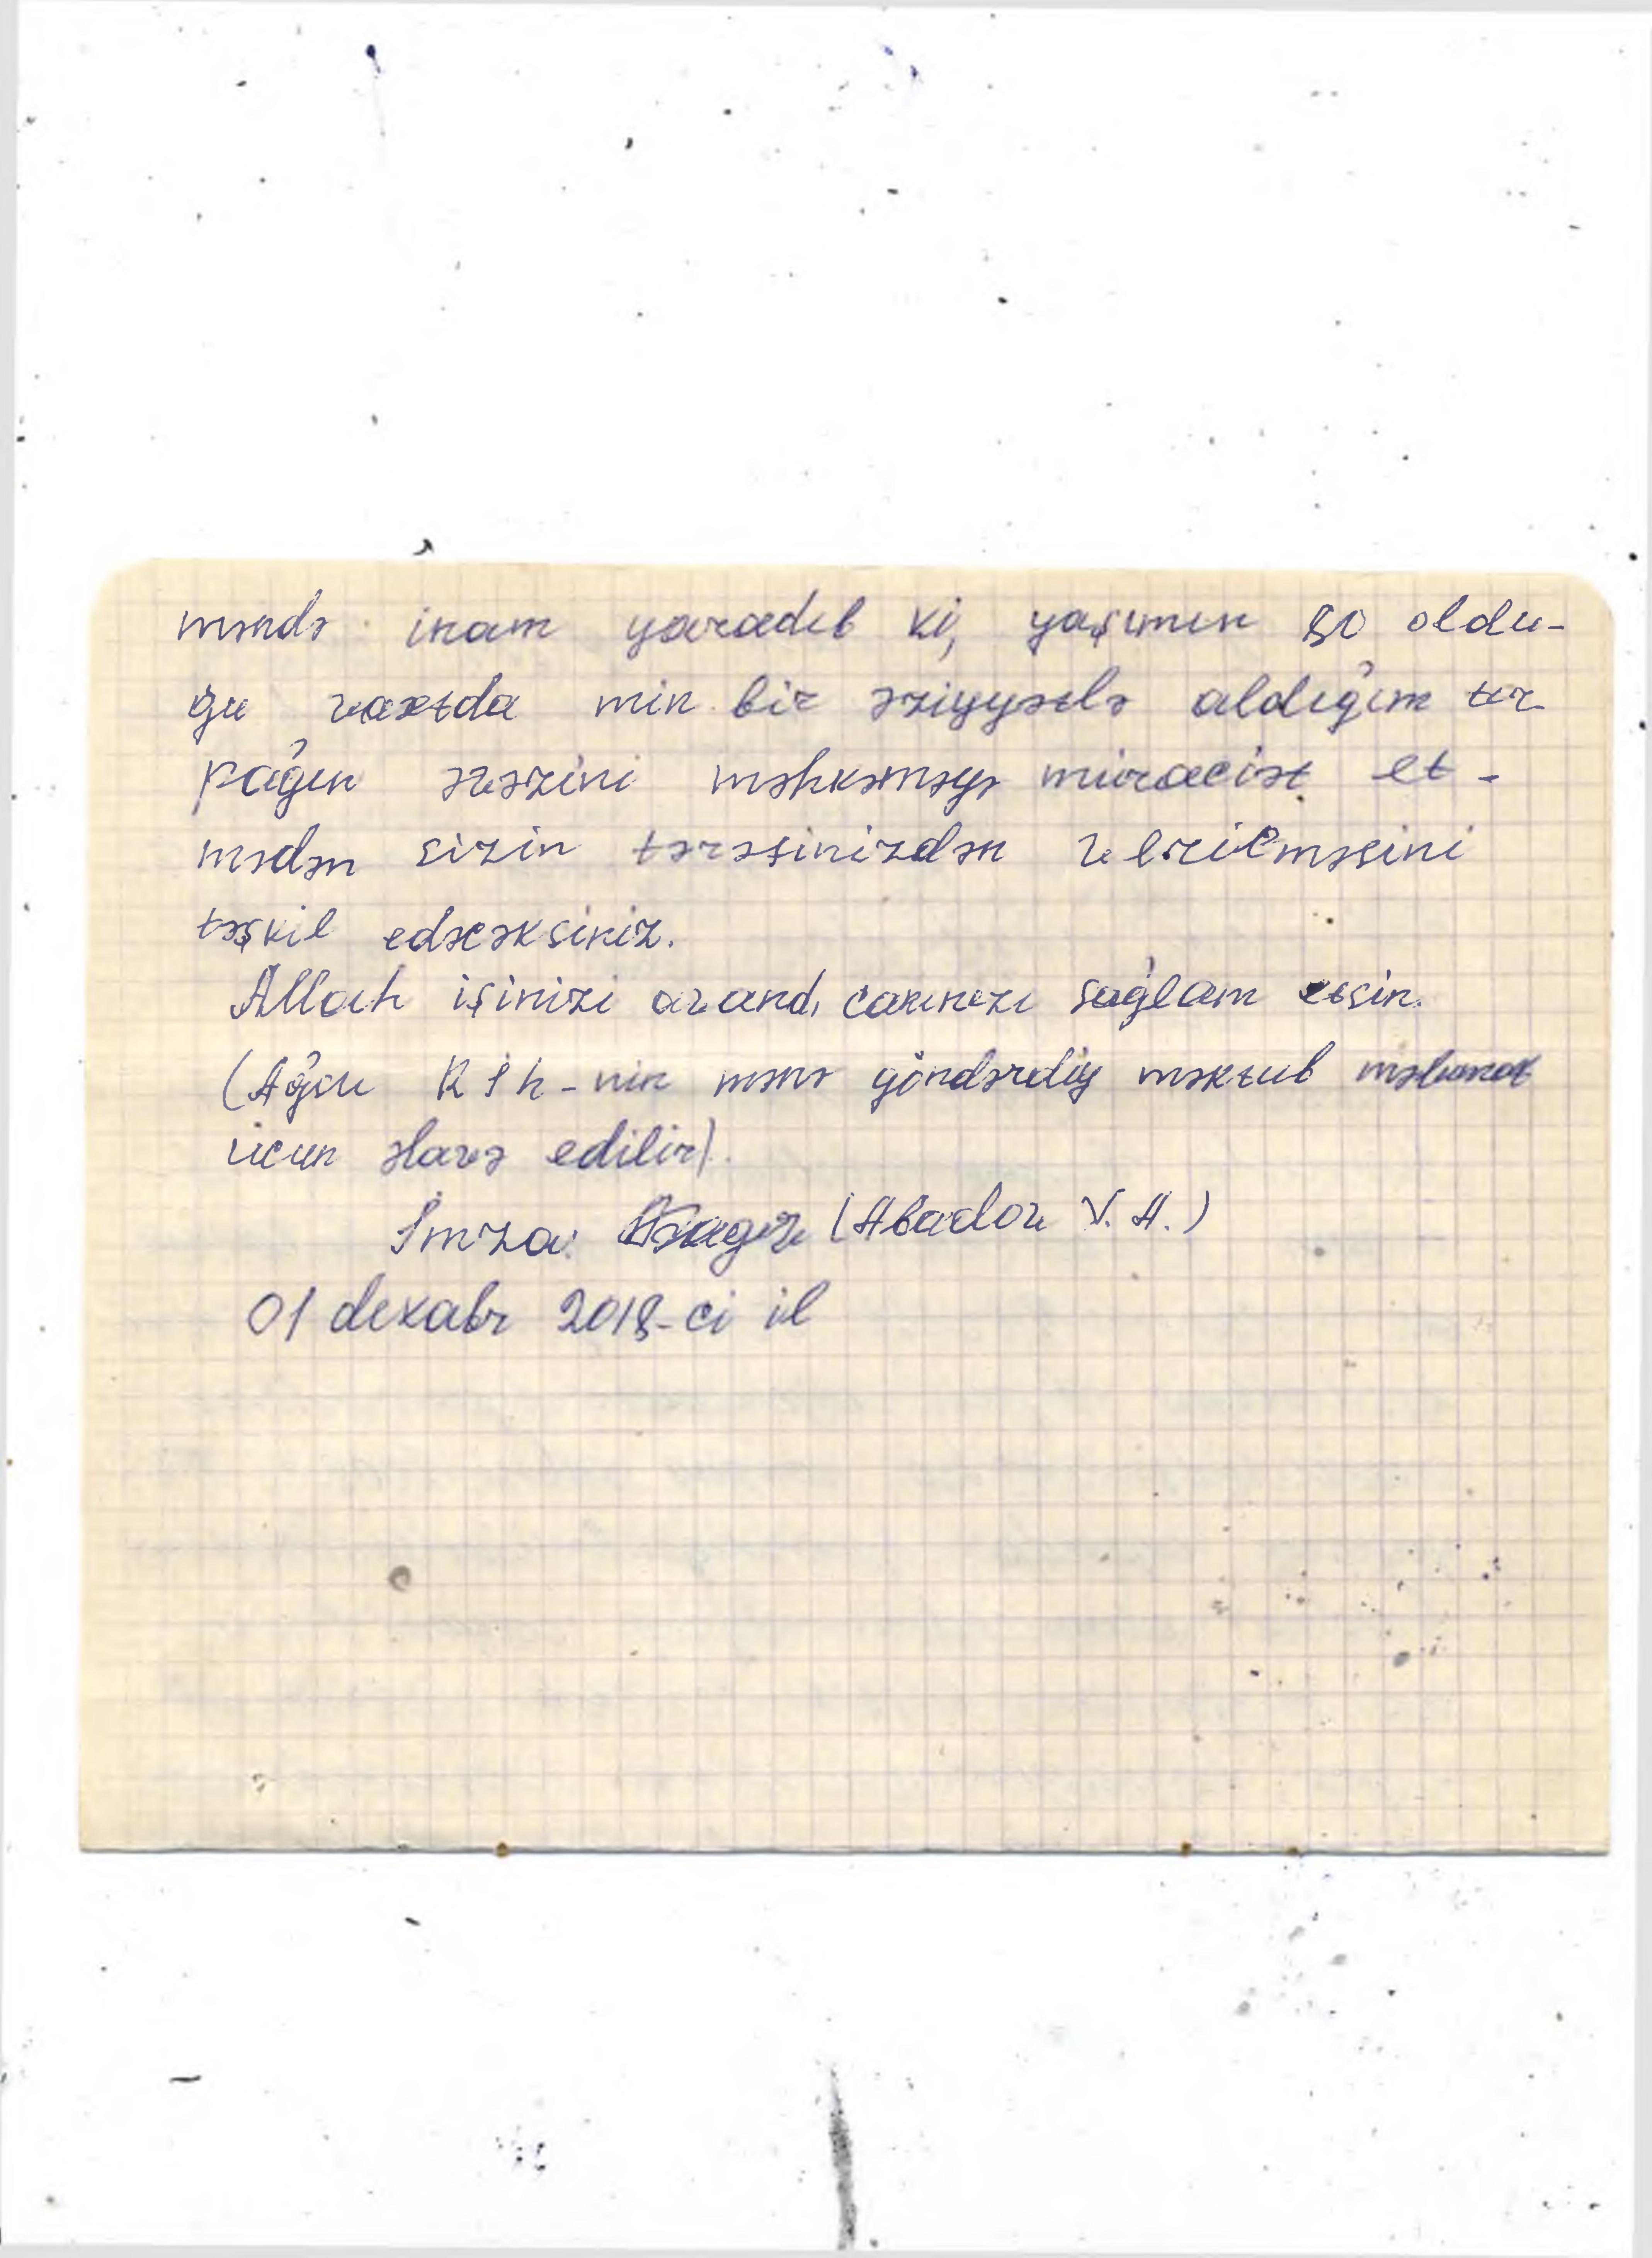 məndə inam yaradıb ki, yaşımın 80 oldu-
ğu vaxtda min bir əziyyətlə aldığım tor
pağın əvəzini məhkəməyə müraciət et-
mədən sizin tərəfinizdən verilməsini
təşkil edəcəksiniz.
Allah işinizi avand, canınızı sağlam etsin.
(Ağsu RİH-nin mənə göndərdiy məktub məlumat
üçün əlavə edilir).
İmza: (Abadov V. A.)
01 dekabr 2018-ci il